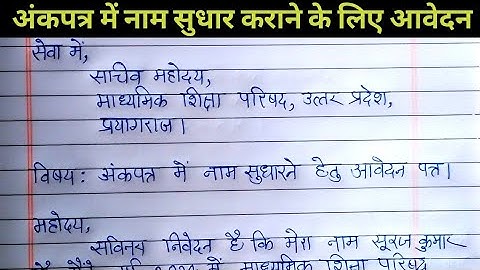 अंकपत्र में नाम सुधार कराने के लिए आवेदन
सेवा में,
सचिव महोदय,
माध्यमिक शिक्षा परिषद, उत्तर प्रदेश,
प्रयागराज।
विषय: अंकपत्र में नाम सुधारने हेतु आवेदन पत्र।
महोदय,
सविनय निवेदन है कि मेरा नाम सूरज कुमार
है मैंने में माध्यमिक शिक्षा परिषद